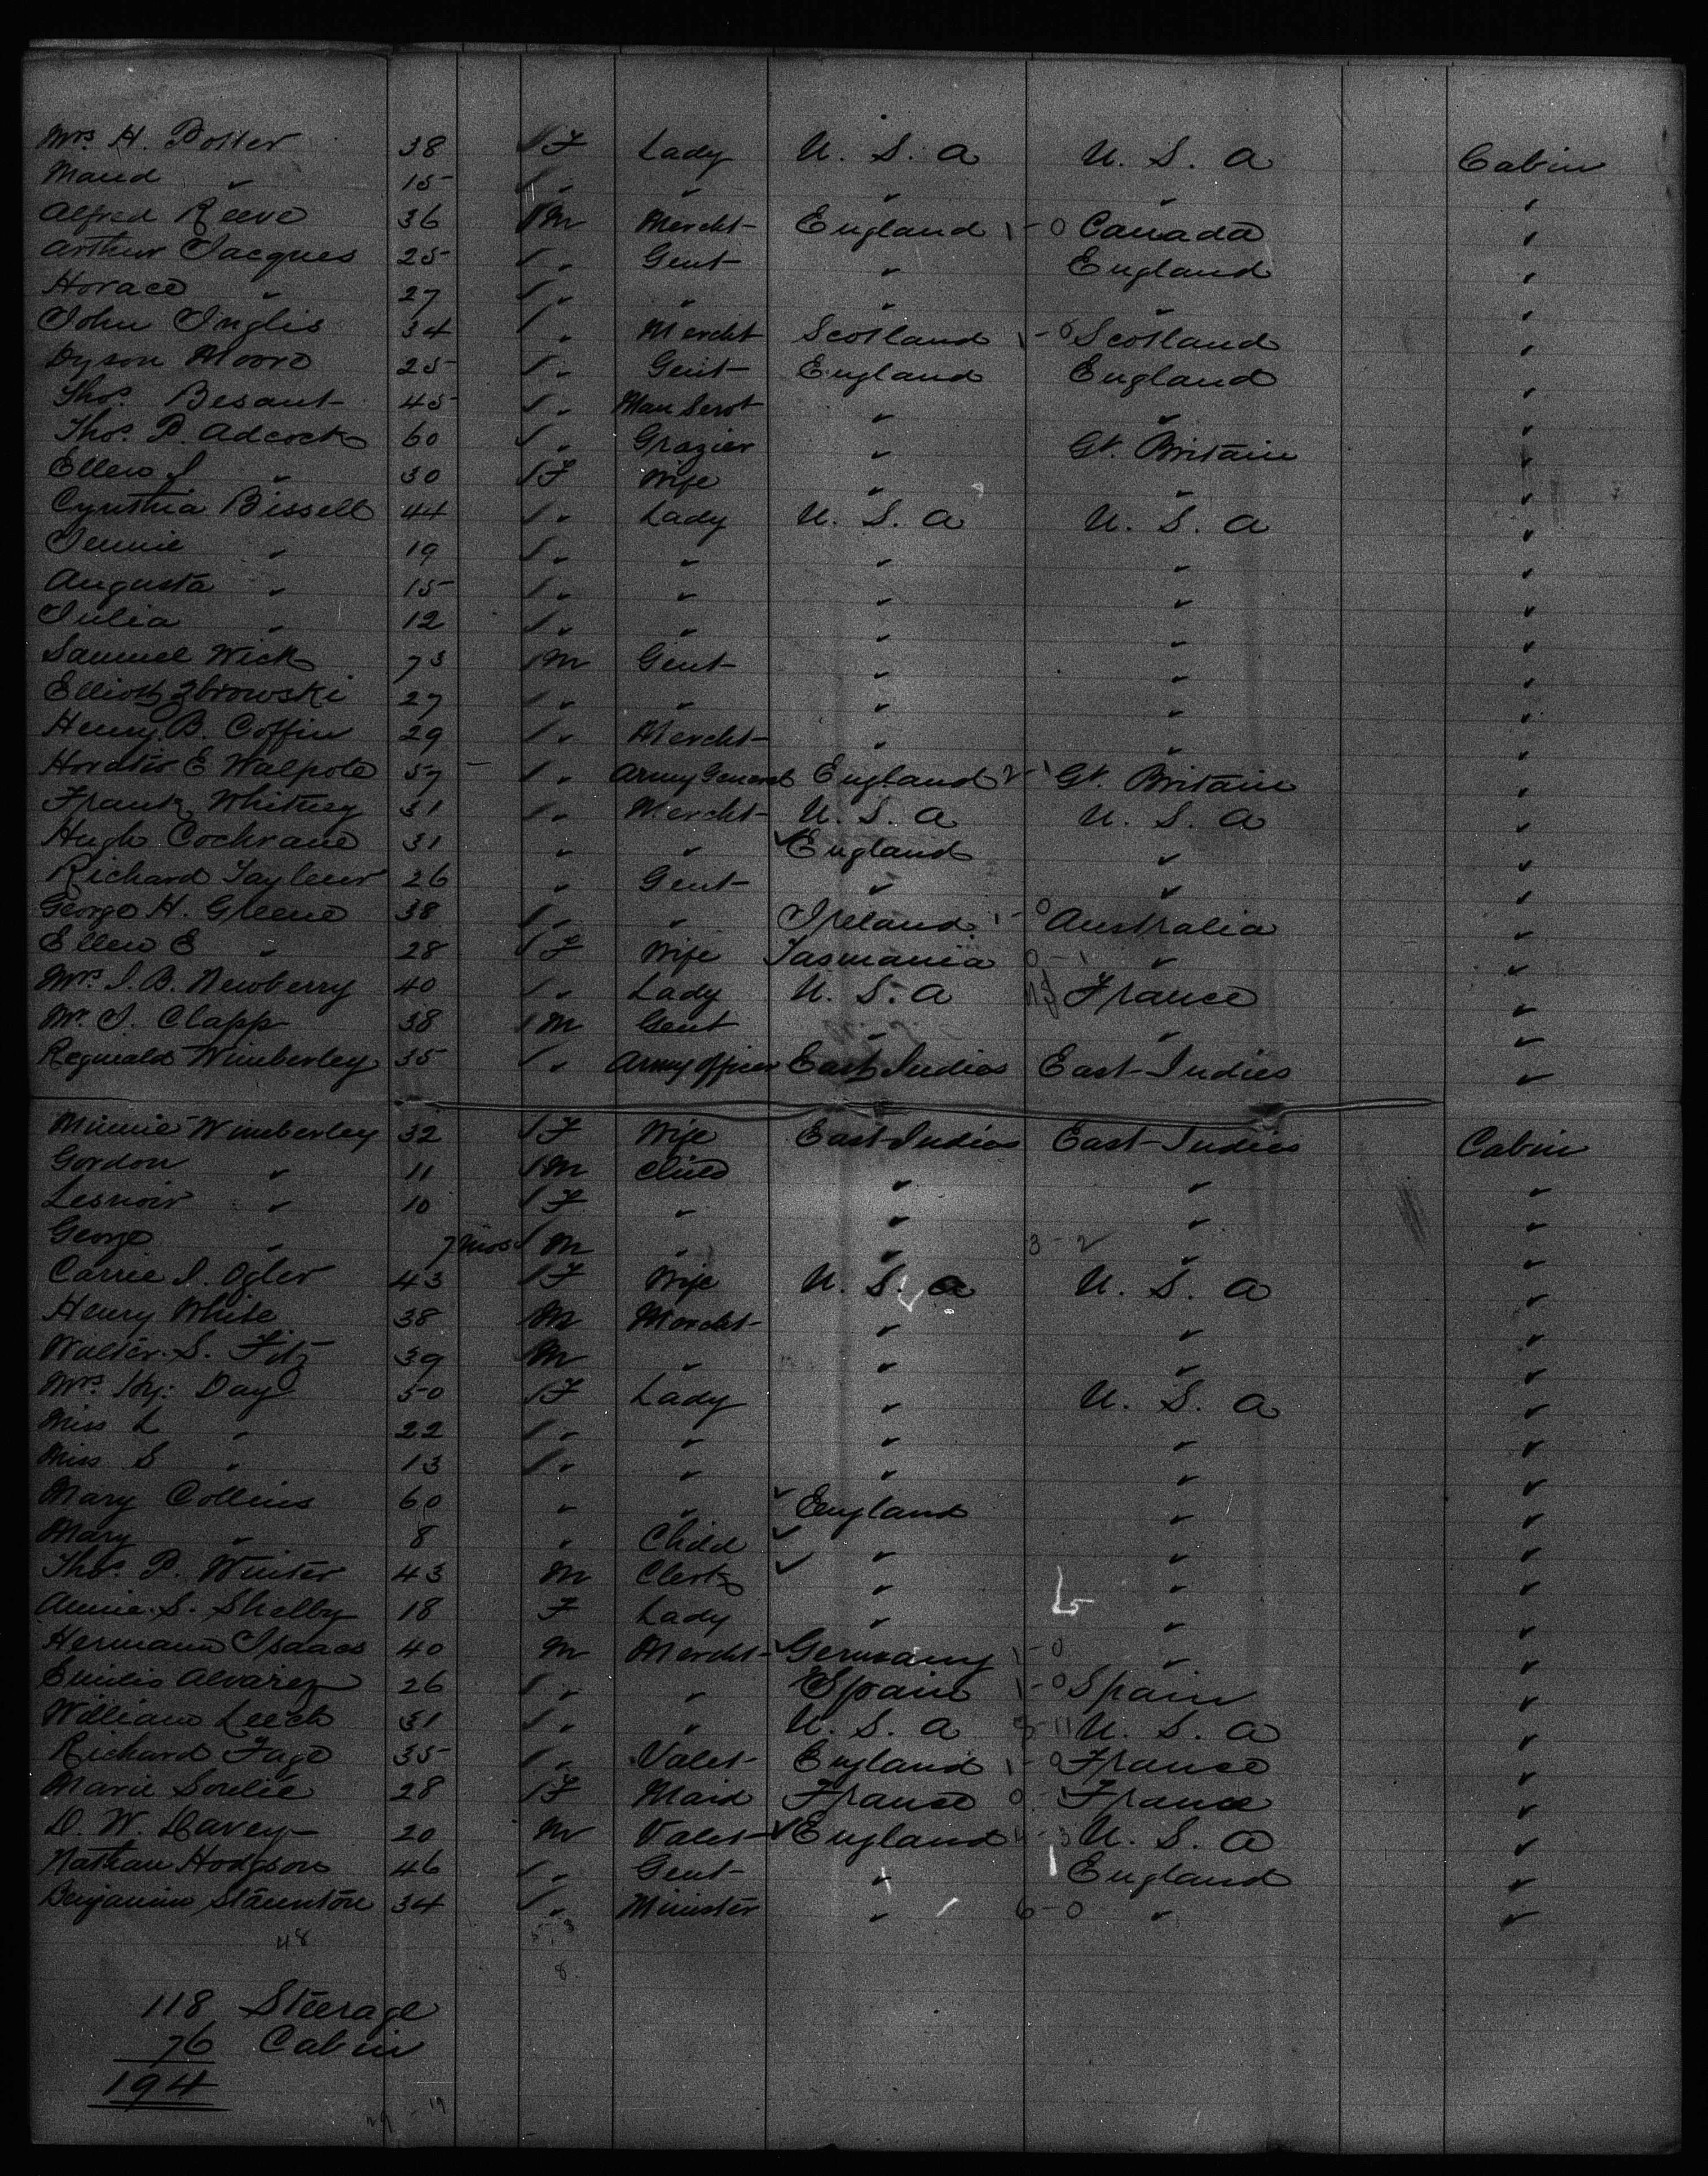 Mrs H. Potter 38 F Lady U. S. A U. S. A Cabin
Maud " 15 " " " " "
Alfred Reeve 36 M Mercht England 1-0 Canada "
Arthur Jacques 25 " Gent " England "
Horace " 27 " " " " "
John Inglis 34 " Mercht Scotland 1-0 Scotland "
Dyson Moore 25 " Gent England England "
Thos. Besant 45 " Man Servt " " "
Thos. P. Adcock 60 " Grazier " Gt. Britain "
Ellen J " 30 F Wife " " "
Cynthia Bissell 44 " Lady U. S. A U. S. A "
Jennie " 19 " " " " "
Augusta " 15 " " " " "
Julia " 12 " " " " "
Samuel Wick 73 M Gent " " "
Elliott Zbrowski 27 " " " " "
Henry B. Coffin 29 " Mercht " " "
Horatio E Walpole 57 " Army General England 2-1 Gt. Britain "
Frank Whitney 31 " Mercht U. S. A U. S. A "
Hugh Cochrane 31 " " England " "
Richard Tayleur 26 " Gent " " "
George H. Greene 38 " " Ireland 1-0 Australia "
Ellen E " 28 F Wife Tasmania 0-1 " "
Mrs. J. B. Newberry 40 " Lady U. S. A France "
Mr. J. Clapp 38 M Gent " " "
Reginald Wimberley 35 " Army Officer East Indies East Indies "
Minnie Wimberley 32 F Wife East Indies East Indies Cabin
Gordon " 11 M Child " " "
Lesnoir " 10 F " " " "
George " 7 mos M " " 3-2 " "
Carrie J. Ogler 43 F Wife U. S. A U. S. A "
Henry White 38 M Mercht " " "
Walter. S. Fitz 39 M " " " "
Mrs. Hy: Day 50 F Lady " U. S. A "
Miss L " 22 " " " " "
Miss S " 13 " " " " "
Mary Collins 60 " " England " "
Mary " 8 " Child " " "
Thos. P. Winter 43 M Clerk " " "
Annie. S. Shelby 18 F Lady " " "
Hermann Isaacs 40 M Mercht Germany 1-0 " "
Emilio Alvarez 26 " " Spain 1-0 Spain "
William Leech 31 " " U. S. A U. S. A "
Richard Fage 35 " Valet England 1-0 France "
Marie Soulie 28 F Maid France France "
D. W. Davey 20 M Valet England U. S. A "
Nathan Hodgson 46 " Gent " England "
Benjamin Staunton 34 " Minister " 6-0 " "
48
118 Steerage
76 Cabin
194